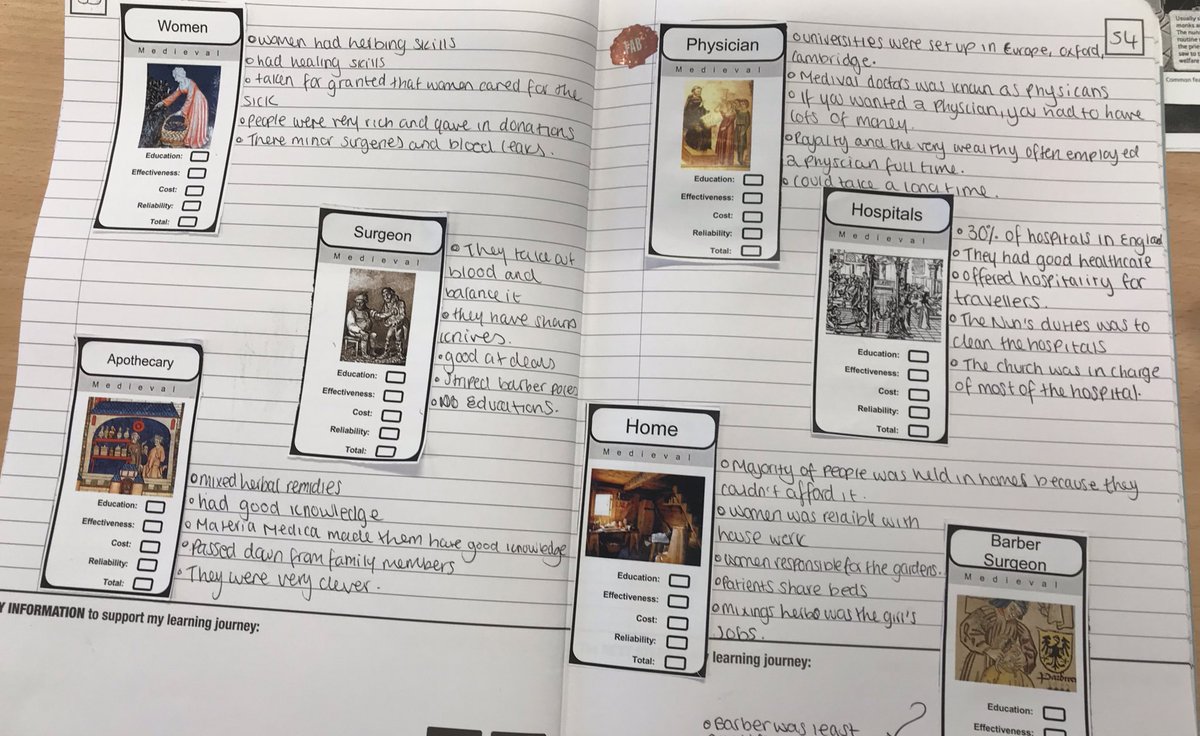 Women
Medieval
Education:
Effectiveness:
Cost:
Reliability:
Total:
o women had herbing skills
o had healing skills
o taken for granted that women cared for the
sick
o people were very rich and gave in donations
o There minor surgeries and blood leaks.
Surgeon
Medieval
Education:
Effectiveness:
Cost:
Reliability:
Total:
o They take out
blood and
balance it
o they have sharp
knives.
o good at deals
o striped barber poles
o NO Educations.
Apothecary
Medieval
Education:
Effectiveness:
Cost:
Reliability:
Total:
o mixed herbal remidies
o had good knowledge
o Materia Medica made them have good knowledge
o Passed down from family members
o They were very clever.
Y INFORMATION to support my learning journey:
FAB
54
Physician
Medieval
Education:
Effectiveness:
Cost:
Reliability:
Total:
o universities were set up in Europe, oxford,
cambridge.
o Medival doctors was known as physicans
o If you wanted a physcian, you had to have
lots of money.
o Royalty and the very wealthy often employed
a physcian full time.
o could take a long time.
Hospitals
Medieval
Education:
Effectiveness:
Cost:
Reliability:
Total:
o 30% of hospitals in England
o They had good healthcare
o offered hospitality for
travellers.
o The Nun's duties was to
clean the hospitals
o The church was in charge
of most of the hospital.
Home
Medieval
Education:
Effectiveness:
Cost:
Reliability:
Total:
o Majority of people was held in homes because they
couldn't afford it.
o women was relaible with
house work
o women responsible for the gardens.
o Patients share beds
o mixings herbs was the girl's
jobs.
learning journey:
Barber
Surgeon
Medieval
Education:
Effectiveness:
o Barber was least
Usually
monks
The nun
routine
the prie
saw to
welfare
Common fea